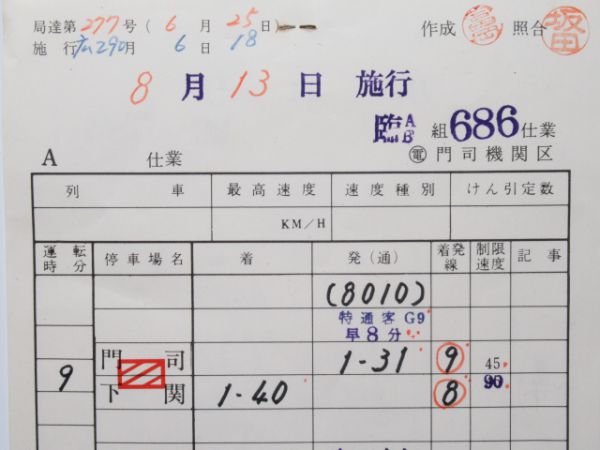 局達第277号(6月25日)
作成 照合 坂田
施行広290月6日18
8月13日 施行
臨AB組686仕業
A 仕業
電 門司機関区
列車 最高速度 速度種別 けん引定数
KM/H
運転時分 停車場名 着 発(通) 着発線 制限速度 記事
(8010)
特通客G9
早8分
門司 1-31 9 45
9
下関 1-40 8 90